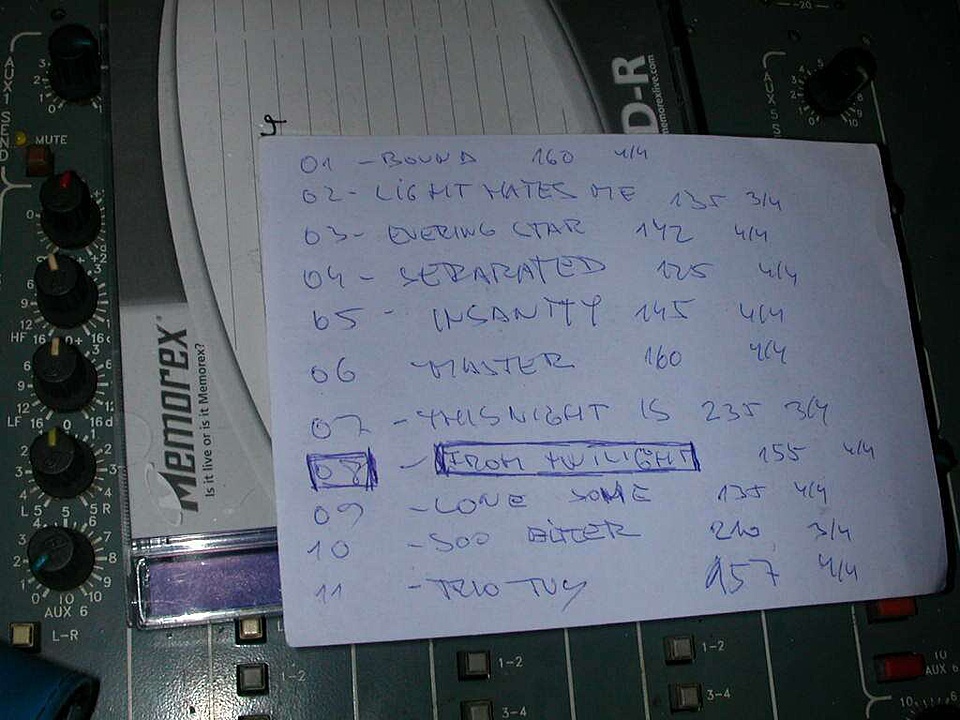 01 - BOUND 160 4/4
02 - LIGHT HATES ME 135 3/4
03 - EVERING STAR 142 4/4
04 - SERARATED 125 4/4
05 - INSANITY 145 4/4
06 - MASTER 160 4/4
07 - THIS NIGHT IS 235 3/4
08 - FROM TWILIGHT 155 4/4
09 - LONE SOME 135 4/4
10 - SOO BITTER 210 3/4
11 - TRIO TUY 157 4/4
Memorex
Is it live or is it Memorex?
D-R
memorexlive.com
AUX 1
SEND
MUTE
HF
LF
L 5 5 R
AUX 6
L-R
1-2
3-4
1-2
3-4
AUX 5
TO
AUX 6
-20